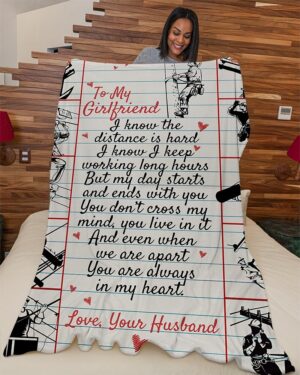 To My
Girlfriend
I know the
distance is hard
I know I keep
working long hours
But my day starts
and ends with you
You don't cross my
mind, you live in it
And even when
we are apart
You are always
in my heart.
Love, Your Husband